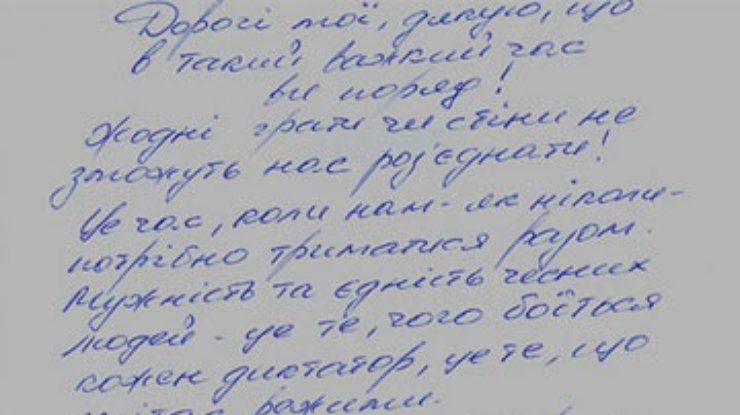 Дорогі мої, дякую, що
в такий важкий час
ви поряд!
Жодні грати чи стіни не
зможуть нас роз'єднати!
Це час, коли нам - як ніколи -
потрібно триматися разом.
Мужність та єдність чесних
людей - це те, чого боїться
кожен диктатор, це те, що
режими.